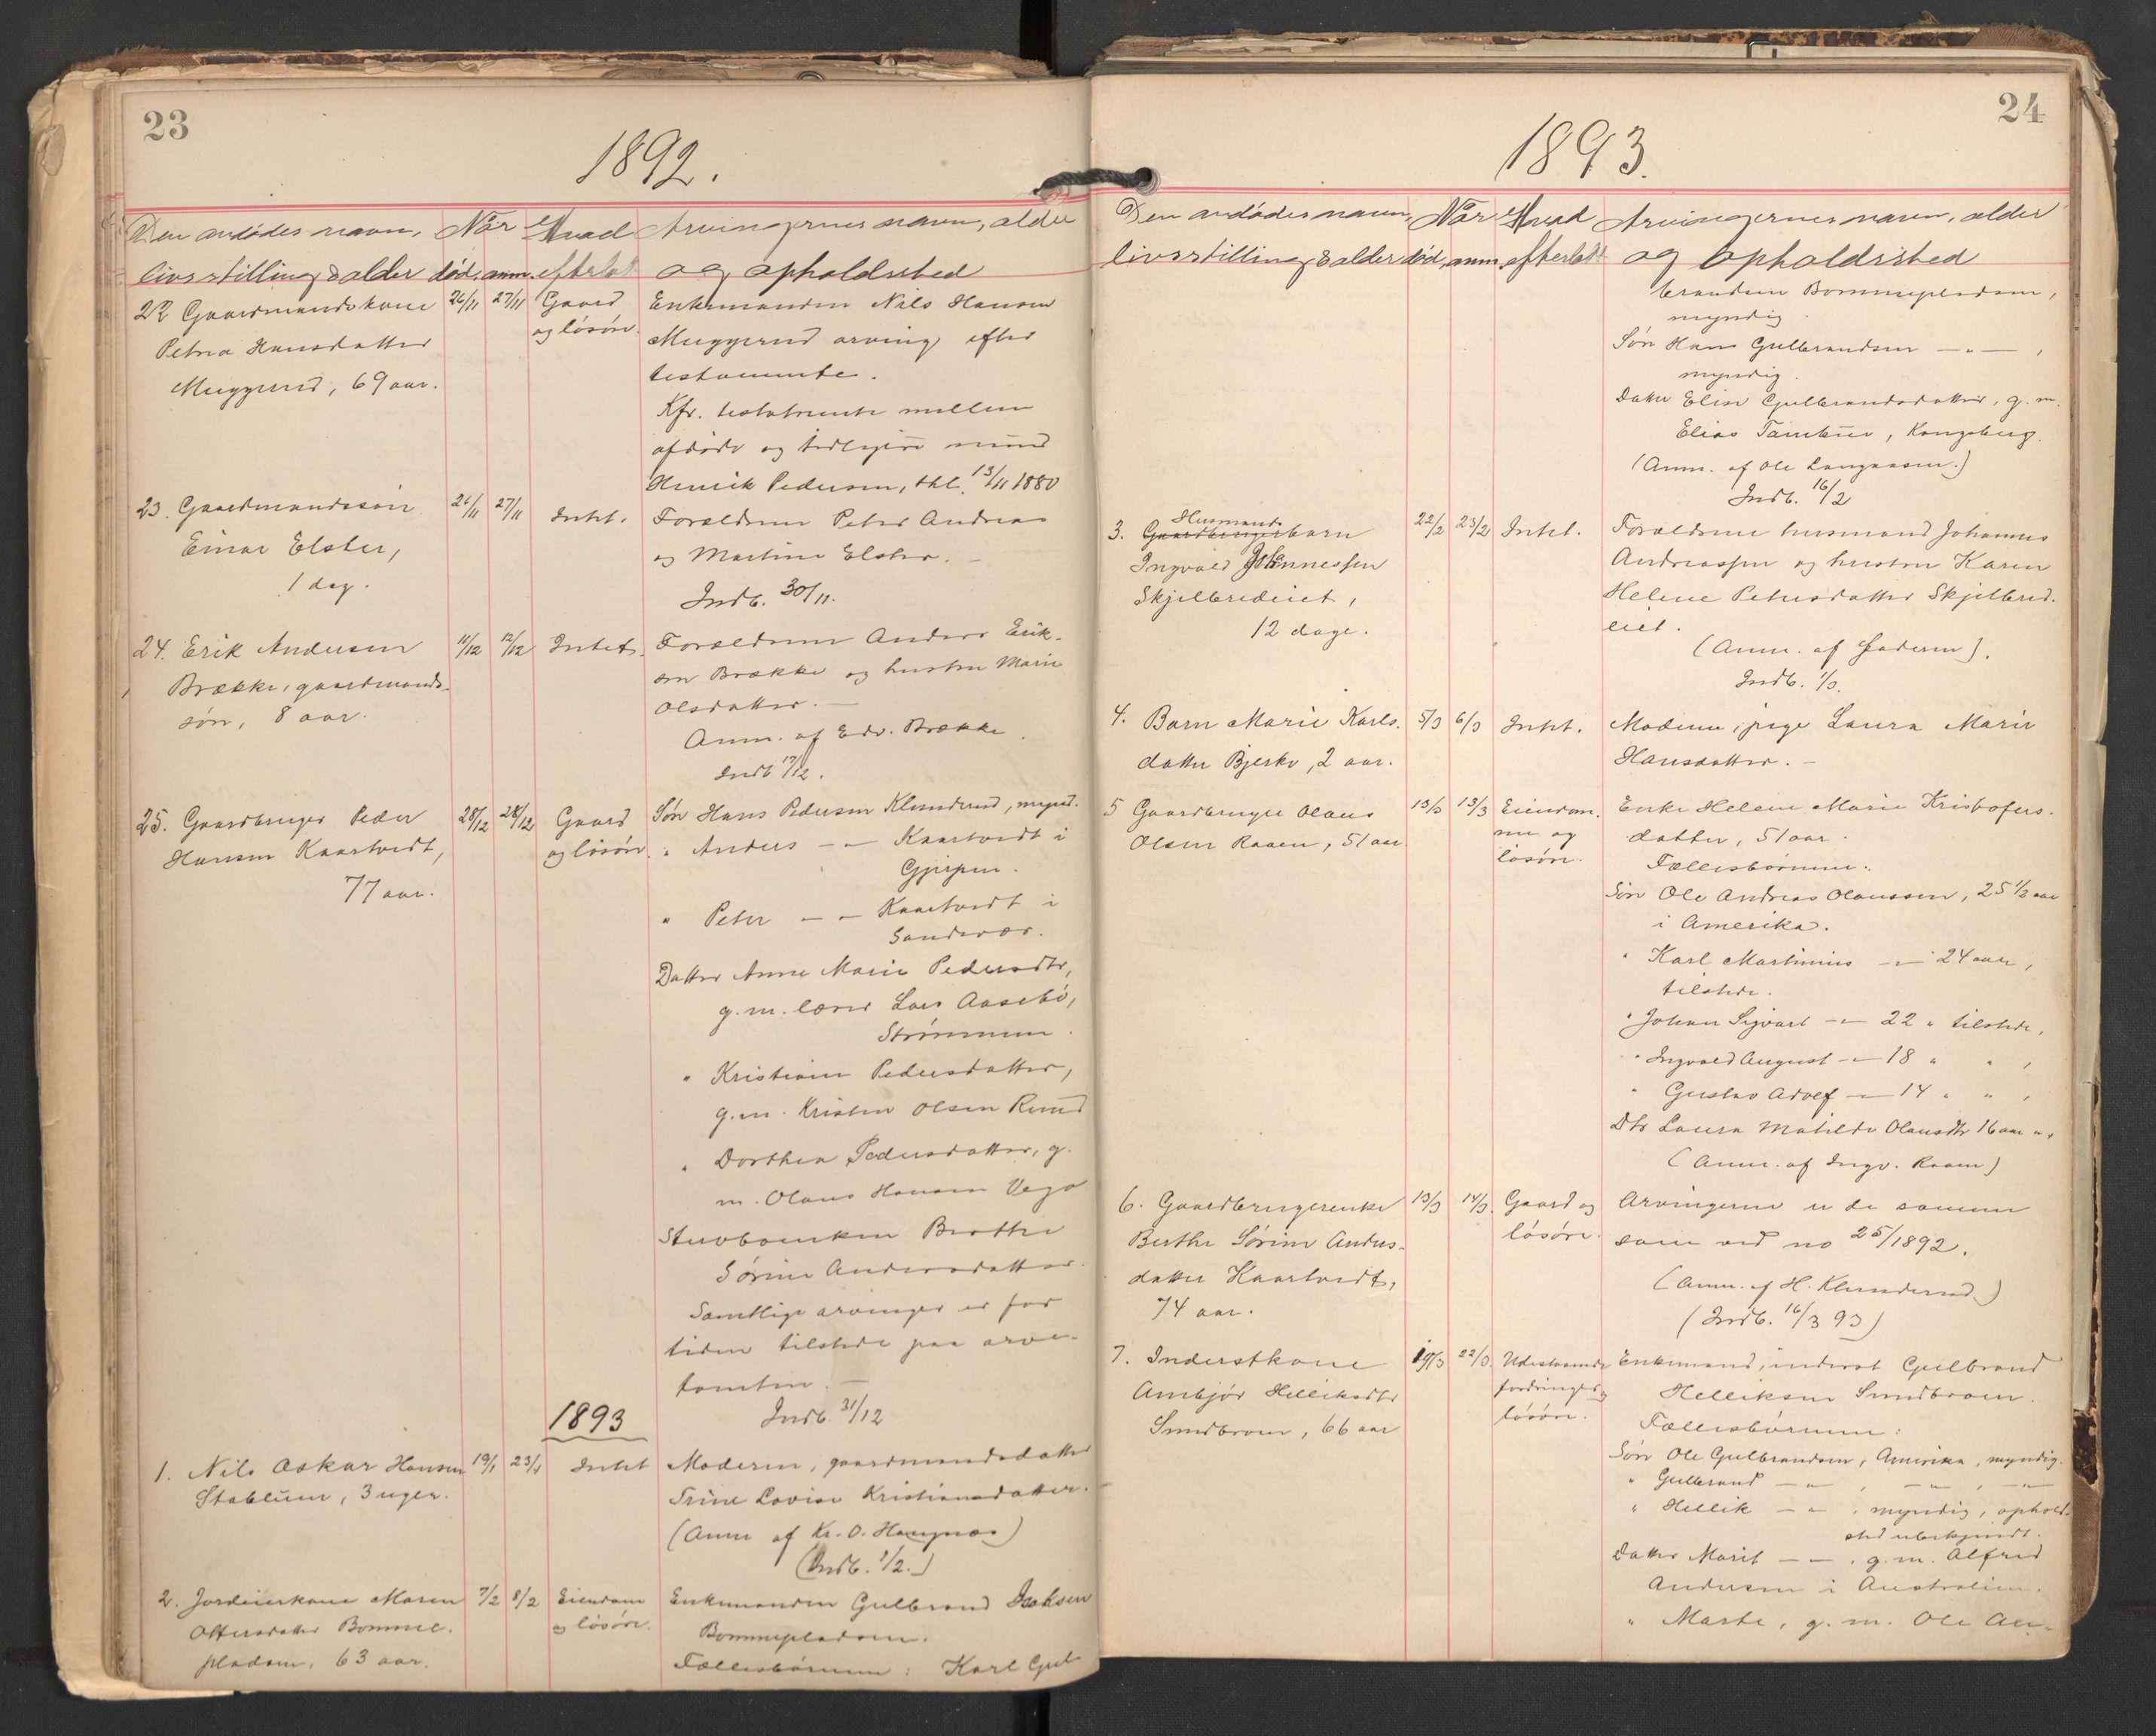 23
1892.
Den avdødes navn, Når Hvad Arvingernes navn, alder
livsstilling & alder død, anm. efterlatt og opholdssted
22 Gaardmandskone 26/11 27/11 Gaard Enkemanden Nils Hansen
Petria Hansdatter og løsøre. Muggerud arving efter
Muggerud, 69 aar. testamente.
Kfr. testamente mellem
afdøde og tidligere mand
Henrik Pedersen, thl. 13/11 1880
23. Gaardmandssøn 26/11 27/11 Intet. Forældrene Peter Andreas
Einar Elster, og Martine Elster.
1 dag. Indb. 30/11.
24. Erik Andersen 11/12 12/12 Intet. Forældrene Anders Erik-
Brække, gaardmands- sen Brække og hustru Marie
søn, 8 aar. Olsdatter. —
Anm. af Edv. Brække.
Indb. 17/12.
25. Gaardbruger Peder 28/12 28/12 Gaard Søn Hans Pedersen Klunderud, mynd.
Hansen Kaartvedt, og løsøre. " Anders — " — Kaartvedt i
77 aar. Gjerpen.
" Peter — " — Kaartvedt i
Sandsvær.
Datter Anne Marie Pedersdtr,
g.m. lærer Lars Aasebø,
Strømmen.
" Kristiane Pedersdatter,
g.m. Kristen Olsen Ruud
" Dorthea Pedersdatter, g.
m. Olaus Hansen
Stervboenken Berthe
Sørine Andersdatter.
Samtlige arvinger er for
tiden tilstede paa arve-
tomten. —
1893 Indb. 31/12
1. Nils Oskar Hansen 19/1 23/1 Intet Moderen, gaardmandsdatter
Stablum, 3 uger. Trine Lovise Kristiansdatter.
(Anm af Kr. O. Haugnæs)
(Indb. 1/2.)
2. Jordeierkone Maren 7/2 8/2 Eiendom Enkemanden Gulbrand Isaksen
Ottersdatter Bomme- og løsøre. Bommepladsen.
pladsen, 63 aar. Fællesbørnene: Karl Gul-
24
1893.
Den avdødes navn, Når Hvad Arvingernes navn, alder
livsstilling & alder død, anm. efterlatt og opholdssted
brandsen Bommepladsen,
myndig.
Søn Hans Gulbrandsen — " — ,
myndig.
Datter Elise Gulbrandsdatter, g. m.
Elias Tambur, Kongsberg.
(Anm. af Ole Langaasen.)
Indb. 16/2
Husmands
3. Gaardbrugerbarn 22/2 23/2 Intet. Forældrene husmand Johannes
Ingvald Johannessen Andreassen og hustru Karen
Skjelbredeiet, Helene Petersdatter Skjelbred-
12 dage. eiet.
(Anm. af faderen).
Indb. 1/3.
4. Barn Marie Karls- 5/3 6/3 Intet. Moderen, pige Laura Marie
datter Bjerke, 2 aar. Hansdatter. —
5 Gaardbruger Olaus 13/3 13/3 Eiendom- Enke Helene Marie Kristofers-
Olsen Raaen, 51 aar me og datter, 51 aar.
løsøre. Fællesbørnene:
Søn Ole Andreas Olaussen, 25 1/2 aar
i Amerika.
" Karl Martinius — " — 24 aar,
tilstede.
" Johan Sigvart — " — 22 " tilstede,
" Ingvald August — " — 18 " " ,
" Gustav Adolf — " — 14 " " ,
Dtr Laura Matilde Olausdtr 16 aar " .
(Anm. af Ingv. Raaen)
6. Gaardbrugerenke 13/3 14/3 Gaard og Arvingerne er de samme
Berthe Sørine Anders- løsøre. som ved no 25/1892.
datter Kaartvedt, (Anm. af H. Klunderud)
74 aar. (Indb. 16/3 93)
7. Inderstkone 19/3 22/3. Udestaaende Enkemand, inderst Gulbrand
Ambjør Helliksdtr fordringer og Helliksen Sundbroen.
Sundbroen, 66 aar løsøre. Fællesbørnene:
Søn Ole Gulbrandsen, Amerika, myndig.
" Gulbrand — " — , — " — , — " —
" Hellik — " — , myndig, opholds-
sted ubekjendt.
Datter Marit — " — , g. m. Alfred
Andersen i Australien.
" Marte, g. m. Ole An-